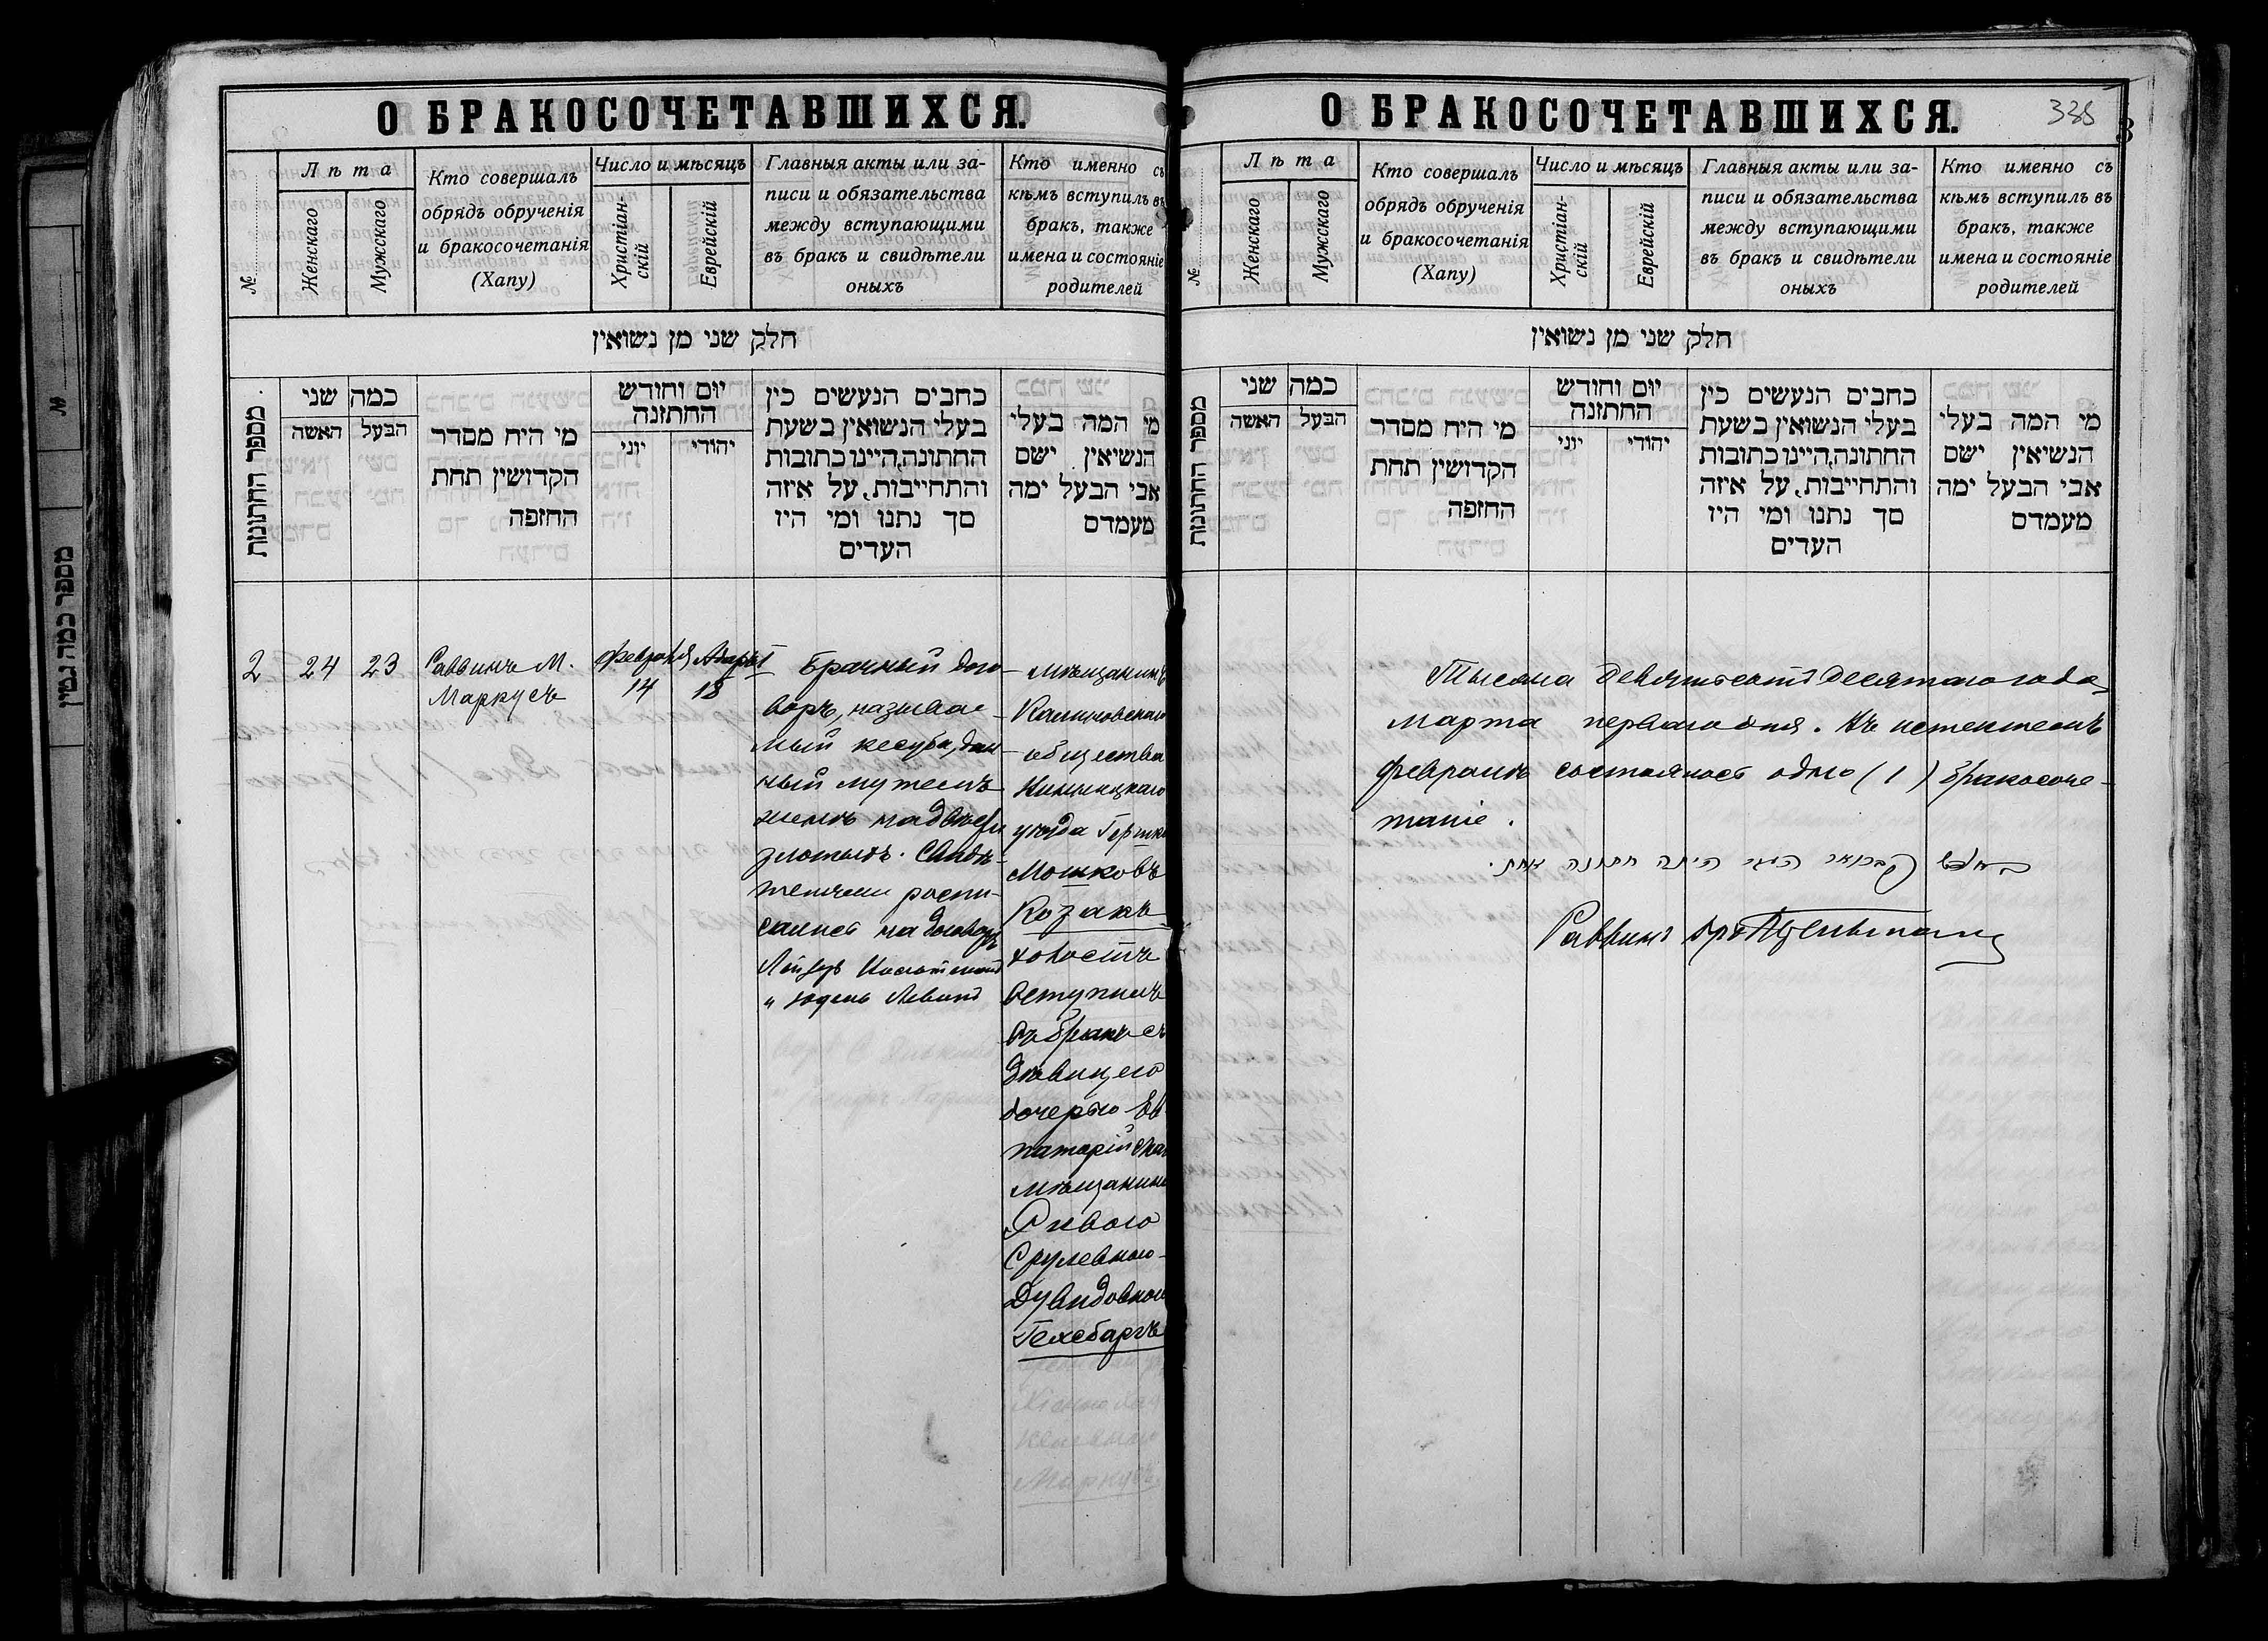 О БРАКОСОЧЕТАВШИХСЯ.
№
Лѣта
Женскаго
Мужскаго
Кто совершалъ
обрядъ обрученія
и бракосочетанія
(Хапу)
Число и мѣсяцъ
Христіан-
скій
Еврейскій
Главныя акты или за-
писи и обязательства
между вступающими
въ бракъ и свидѣтели
оныхъ
Кто именно съ
кѣмъ вступилъ въ
бракъ, также
имена и состояніе
родителей
חלק שני מן נשואין
מספר החתונות
כמה שני
האשה
הבעל
מי היח מסדר
הקדושין תחת
החופה
יום וחודש
החתונה
יוני
יהודי
כחבים הנעשים כין
בעלי הנשואין בשעת
החתונה, היינו כתובות
והתחייבות, על איזה
סך נתנו ומי היו
העדים
מי המה בעלי
הנשיאין ישם
אבי הבעל ימה
מעמדם
2
24
23
Раввинъ М.
Маркусъ
Февраля
14
Адаръ I
18
Брачный дого-
воръ, называе-
мый кесуба, дан-
ный мужемъ
женѣ на двѣсти
злотыхъ. Свидѣ-
телями распи-
сались на договорѣ
" Юдель Левинъ
Мѣщанинъ
Калиновскаго
общества
Винницкаго
уѣзда Гершко
Мошковъ
Козакъ
холостъ
вступилъ
въ бракъ съ
дѣвицею
дочерью Ев-
паторійскаго
мѣщанина
Ривою
Срулевною-
Дувидовною
Гехсбаргъ
О БРАКОСОЧЕТАВШИХСЯ.
338
3
№
Лѣта
Женскаго
Мужскаго
Кто совершалъ
обрядъ обрученія
и бракосочетанія
(Хапу)
Число и мѣсяцъ
Христіан-
скій
Еврейскій
Главныя акты или за-
писи и обязательства
между вступающими
въ бракъ и свидѣтели
оныхъ
Кто именно съ
кѣмъ вступилъ въ
бракъ, также
имена и состояніе
родителей
חלק שני מן נשואין
מספר החתונות
כמה שני
האשה
הבעל
מי היח מסדר
הקדושין תחת
החופה
יום וחודש
החתונה
יוני
יהודי
כחבים הנעשים כין
בעלי הנשואין בשעת
החתונה, היינו כתובות
והתחייבות, על איזה
סך נתנו ומי היו
העדים
מי המה בעלי
הנשיאין ישם
אבי הבעל ימה
מעמדם
Тысяча девятьсотъ десятаго года
марта перваго дня. Въ истекшемъ
февралѣ состоялось одно (1) бракосоче-
таніе.
בחדש פברואר היתה חתונה אחת.
Раввинъ